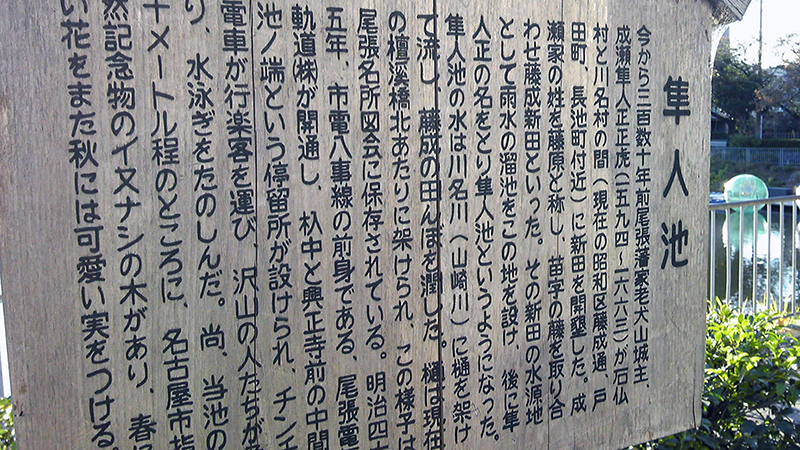 隼人池
今から三百数十年前尾張藩家老犬山城主、
成瀬隼人正正虎(一五九四～一六六三)が石仏
村と川名村の間(現在の昭和区藤成通、戸
田町、長池町付近)に新田を開墾した。成
瀬家の姓を藤原と称し、苗字の藤を取り合
わせ藤成新田といった。その新田の水源地
として雨水の溜池をこの地を設け、後に隼
人正の名をとり隼人池というようになった。
隼人池の水は川名川(山崎川)に樋を架け
て流し、藤成の田んぼを潤した。樋は現在
の檀溪橋北あたりに架けられ、この様子は
尾張名所図会に保存されている。明治四十
五年、市電八事線の前身である、尾張電
軌道㈱が開通し、杁中と興正寺前の中間
池ノ端という停留所が設けられ、チンチ
電車が行楽客を運び、沢山の人たちが
り、水泳ぎをたのしんだ。尚、当池の
十メートル程のところに、名古屋市指
然記念物のイヌナシの木があり、春
い花をまた秋には可愛い実をつける。